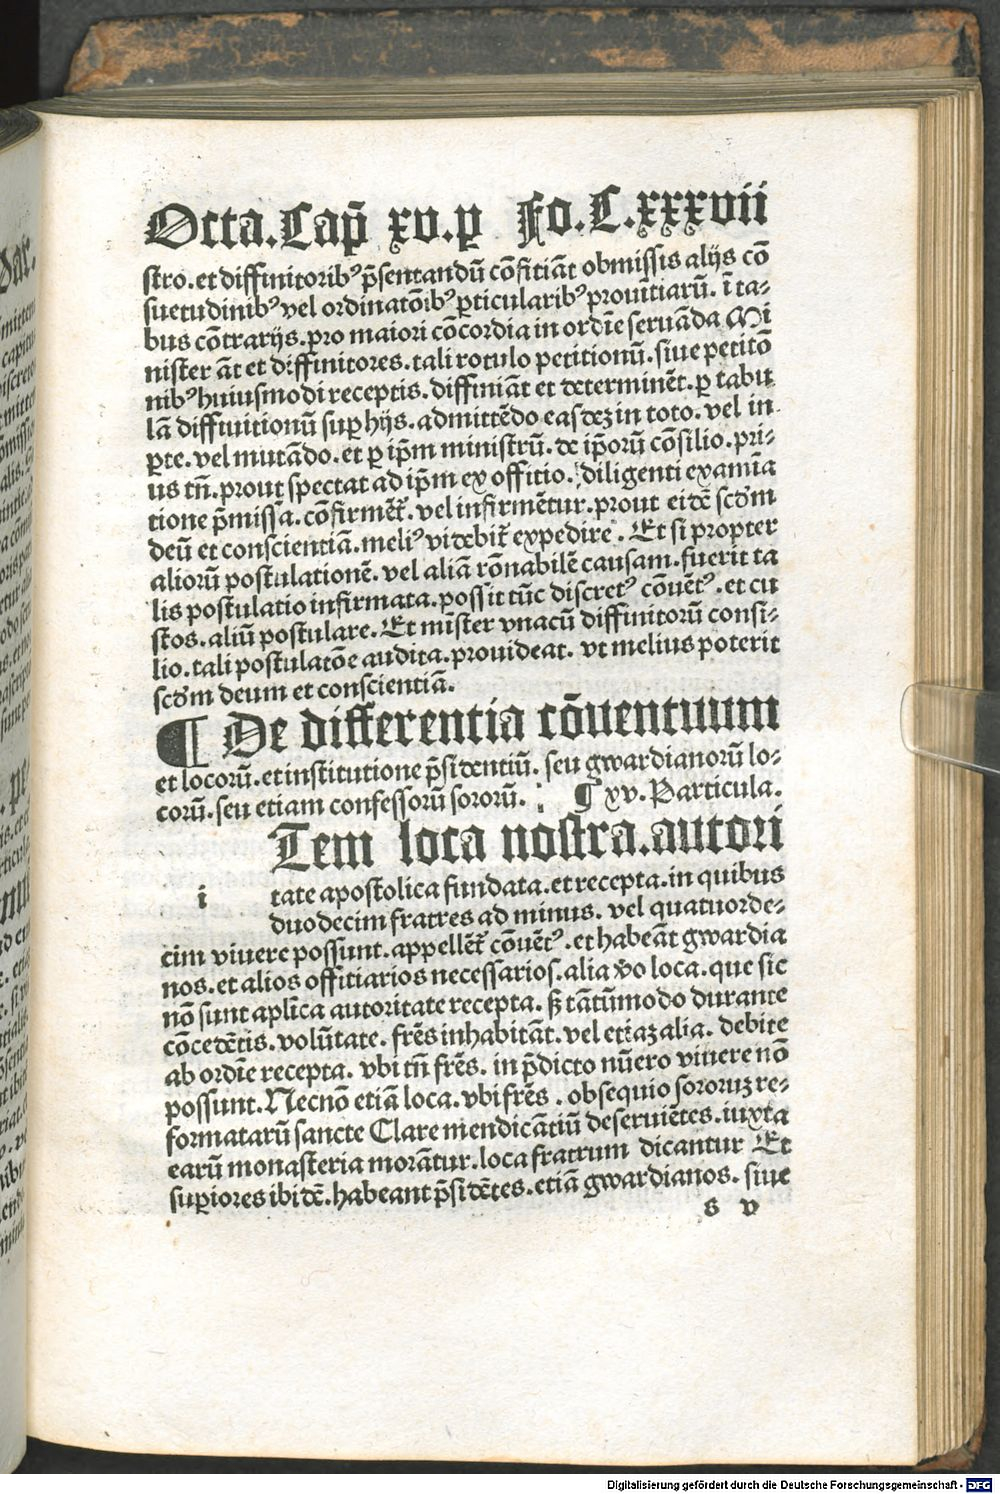 Octa.Cap̄ xv.p Fo.C.xxxvii
stro.et diffinitorib⁹ p̄sentandū cōfitiāt obmissis alijs cō
suetudinib⁹ vel ordinatōib⁹ ꝑticularib⁹ prouītiarū. ī ta⸗
bus cōtrarijs.pro maiori cōcordia in ordīe seruāda Mi
nister āt et diffinitores.tali rotulo petitionū.siue petitō
nib⁹ huiusmodi receptis.diffiniāt et determinēt.ꝑ tabu
lā diffinitionū suꝑ hijs.admittēdo eas dꝫ in toto.vel in
ꝑte.vel mutādo.et ꝑ ip̄m ministrū.de ip̄orū cōsilio.pri⸗
us tn̄.prout spectat ad ip̄m ex offitio.diligenti examīa
tione p̄missa.cōfirmēt᷑.vel infirmētur.prout eidē scd̄m
deū et conscientiā.meli⁹ videbit᷑ expedire. Et si propter
aliorū postulationē.vel aliā rōnabilē causam.fuerit ta
lis postulatio infirmata.possit tūc discret⁹ cōuēt⁹.et cu
stos.aliū postulare.Et mīster vnacū diffinitorū consi⸗
lio.tali postulatōe audita.prouideat. vt melius poterit
scd̄m deum et conscientiā.
¶ De differentia cōuentuum
et locorū.et institutione p̄sidentiū. seu gwardianorū lo⸗
corū.seu etiam confessorū sororū. ¶ xv.Particula.
i
Tem loca nostra.autori
tate apostolica fundata.et recepta.in quibus
duodecim fratres ad minus. vel quatuorde⸗
cim viuere possunt.appellēt᷑ cōuēt⁹.et habeāt gwardia
nos.et alios offitiarios necessarios.alia v̄o loca.que sic
nō sunt aplīca autoritate recepta. sꝫ tātūmodo durante
cōcedētis.volūtate. frēs inhabitāt.vel etiaꝫ alia. debite
ab ordīe recepta. vbi tn̄ frēs. in p̄dicto nūero viuere nō
possunt.Necnō etiā loca.vbi frēs.obsequio sororuꝫ re⸗
formatarū sancte Clare mendicātiū deseruiētes.iuxta
earū monasteria morātur.loca fratrum dicantur Et
suꝑiores ibidē.habeant p̄sidētes.etiā gwardianos. siue
s v
Digitalisierung gefördert durch die Deutsche Forschungsgemeinschaft - DFG